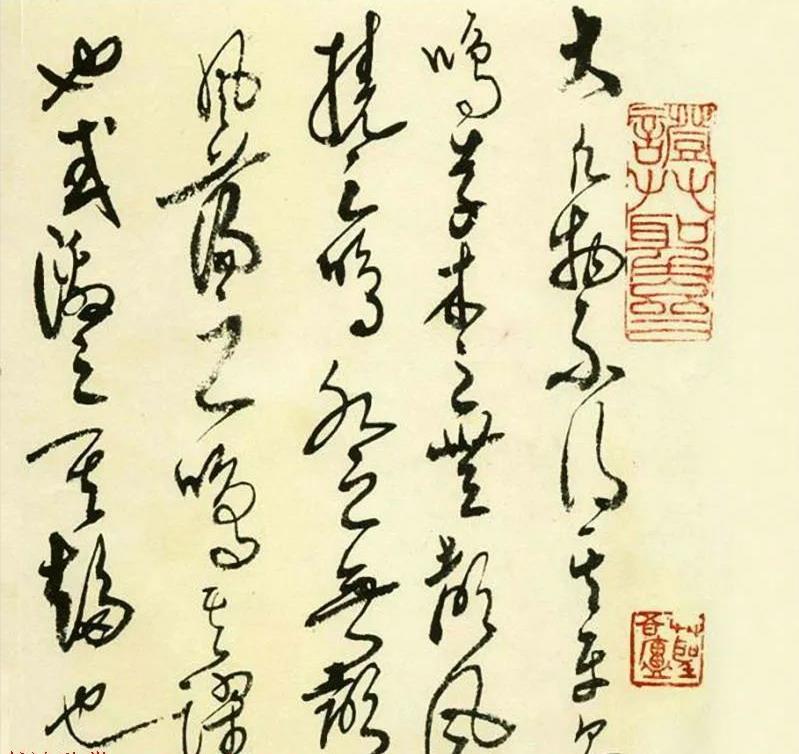 大凡物不得其平則
鳴草木之無聲風
撓之鳴水之無聲
風蕩之鳴其躍
也或激之其趨也